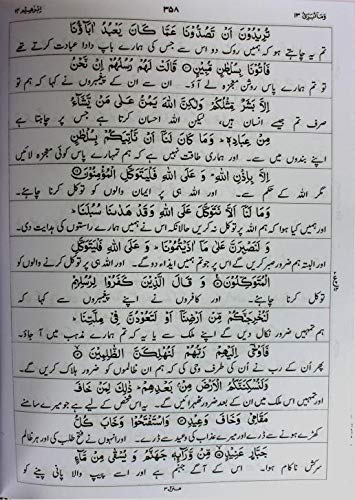 وَمَآ اُبَرِّئُ ۱۳ ۳۵۸ اِبْرٰهِيْم ۱۴
تُرِيْدُوْنَ اَنْ تَصُدُّوْنَا عَمَّا كَانَ يَعْبُدُ اٰبَآؤُنَا
تم یہ چاہتے ہو کہ ہمیں روک دو اس سے جس کی ہمارے باپ دادا عبادت کرتے تھے
فَاْتُوْنَا بِسُلْطٰنٍ مُّبِيْنٍ۝ قَالَتْ لَهُمْ رُسُلُهُمْ اِنْ نَّحْنُ
تم ہمارے پاس روشن معجزہ لے آؤ۔ ان سے ان کے پیغمبروں نے کہا کہ ہم تو
اِلَّا بَشَرٌ مِّثْلُكُمْ وَلٰكِنَّ اللّٰهَ يَمُنُّ عَلٰى مَنْ يَّشَآءُ
صرف تم جیسے انسان ہیں، لیکن اللہ احسان کرتا ہے جس پر چاہتا ہے
مِنْ عِبَادِهٖ ؕ وَمَا كَانَ لَنَآ اَنْ نَّاْتِيَكُمْ بِسُلْطٰنٍ
اپنے بندوں میں سے۔ اور ہماری طاقت نہیں ہے کہ ہم تمہارے پاس کوئی معجزہ لائیں
اِلَّا بِاِذْنِ اللّٰهِ ؕ وَ عَلَى اللّٰهِ فَلْيَتَوَكَّلِ الْمُؤْمِنُوْنَ۝
مگر اللہ کے حکم سے۔ اور اللہ ہی پر ایمان والوں کو توکل کرنا چاہئے۔
وَمَا لَنَآ اَلَّا نَتَوَكَّلَ عَلَى اللّٰهِ وَقَدْ هَدٰىنَا سُبُلَنَا ؕ
اور ہمیں کیا ہوا کہ ہم اللہ پر توکل نہ کریں حالانکہ اس نے ہمیں ہمارے راستوں کی ہدایت دی۔
وَ لَنَصْبِرَنَّ عَلٰى مَآ اٰذَيْتُمُوْنَا ؕ وَ عَلَى اللّٰهِ فَلْيَتَوَكَّلِ
اور البتہ ہم ضرور صبر کریں گے اس پر جو تم ہمیں ایذاء دو گے۔ اور اللہ ہی پر توکل کرنے والوں کو
الْمُتَوَكِّلُوْنَ۝ وَ قَالَ الَّذِيْنَ كَفَرُوْا لِرُسُلِهِمْ
توکل کرنا چاہئے۔ اور کافروں نے اپنے پیغمبروں سے کہا کہ
لَنُخْرِجَنَّكُمْ مِّنْ اَرْضِنَآ اَوْ لَتَعُوْدُنَّ فِيْ مِلَّتِنَا ؕ
ہم تمہیں ضرور نکال دیں گے اپنے ملک سے یا یہ کہ تم ہمارے مذہب میں آ جاؤ۔
فَاَوْحٰٓى اِلَيْهِمْ رَبُّهُمْ لَنُهْلِكَنَّ الظّٰلِمِيْنَ۝
پھر اُن کے رب نے اُن کی طرف وحی کی کہ ہم ان ظالموں کو ضرور ہلاک کریں گے۔
وَلَنُسْكِنَنَّكُمُ الْاَرْضَ مِنْۢ بَعْدِهِمْ ؕ ذٰلِكَ لِمَنْ خَافَ
اور تمہیں اس ملک میں ان کے بعد ضرور ٹھہرائیں گے۔ یہ اس شخص کے لیے ہے جو میرے سامنے
مَقَامِيْ وَخَافَ وَعِيْدِ۝ وَاسْتَفْتَحُوْا وَخَابَ كُلُّ
کھڑے ہونے سے ڈرے اور میرے عذاب کی وعید سے ڈرے۔ اور انہوں نے فتح طلب کی اور ہر ظالم
جَبَّارٍ عَنِيْدٍ۝ مِّنْ وَّرَآئِهٖ جَهَنَّمُ وَ يُسْقٰى مِنْ مَّآءٍ
سرکش ناکام ہوا۔ اس کے آگے جہنم ہے اور اسے پیپ والا پانی پینے کو